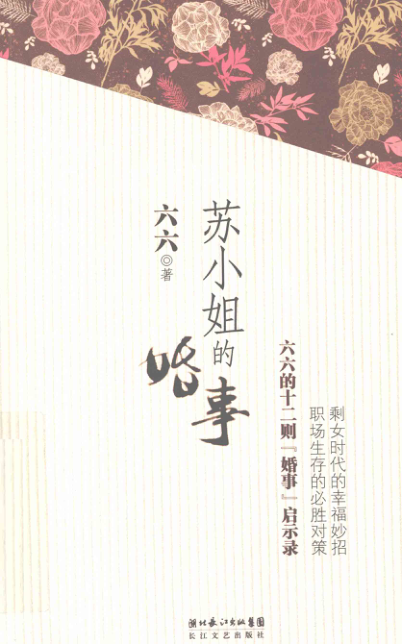 苏小姐的婚事
六六◎著
六六的十二则“婚事”启示录
剩女时代的幸福妙招
职场生存的必胜对策
湖北长江出版集团
长江文艺出版社